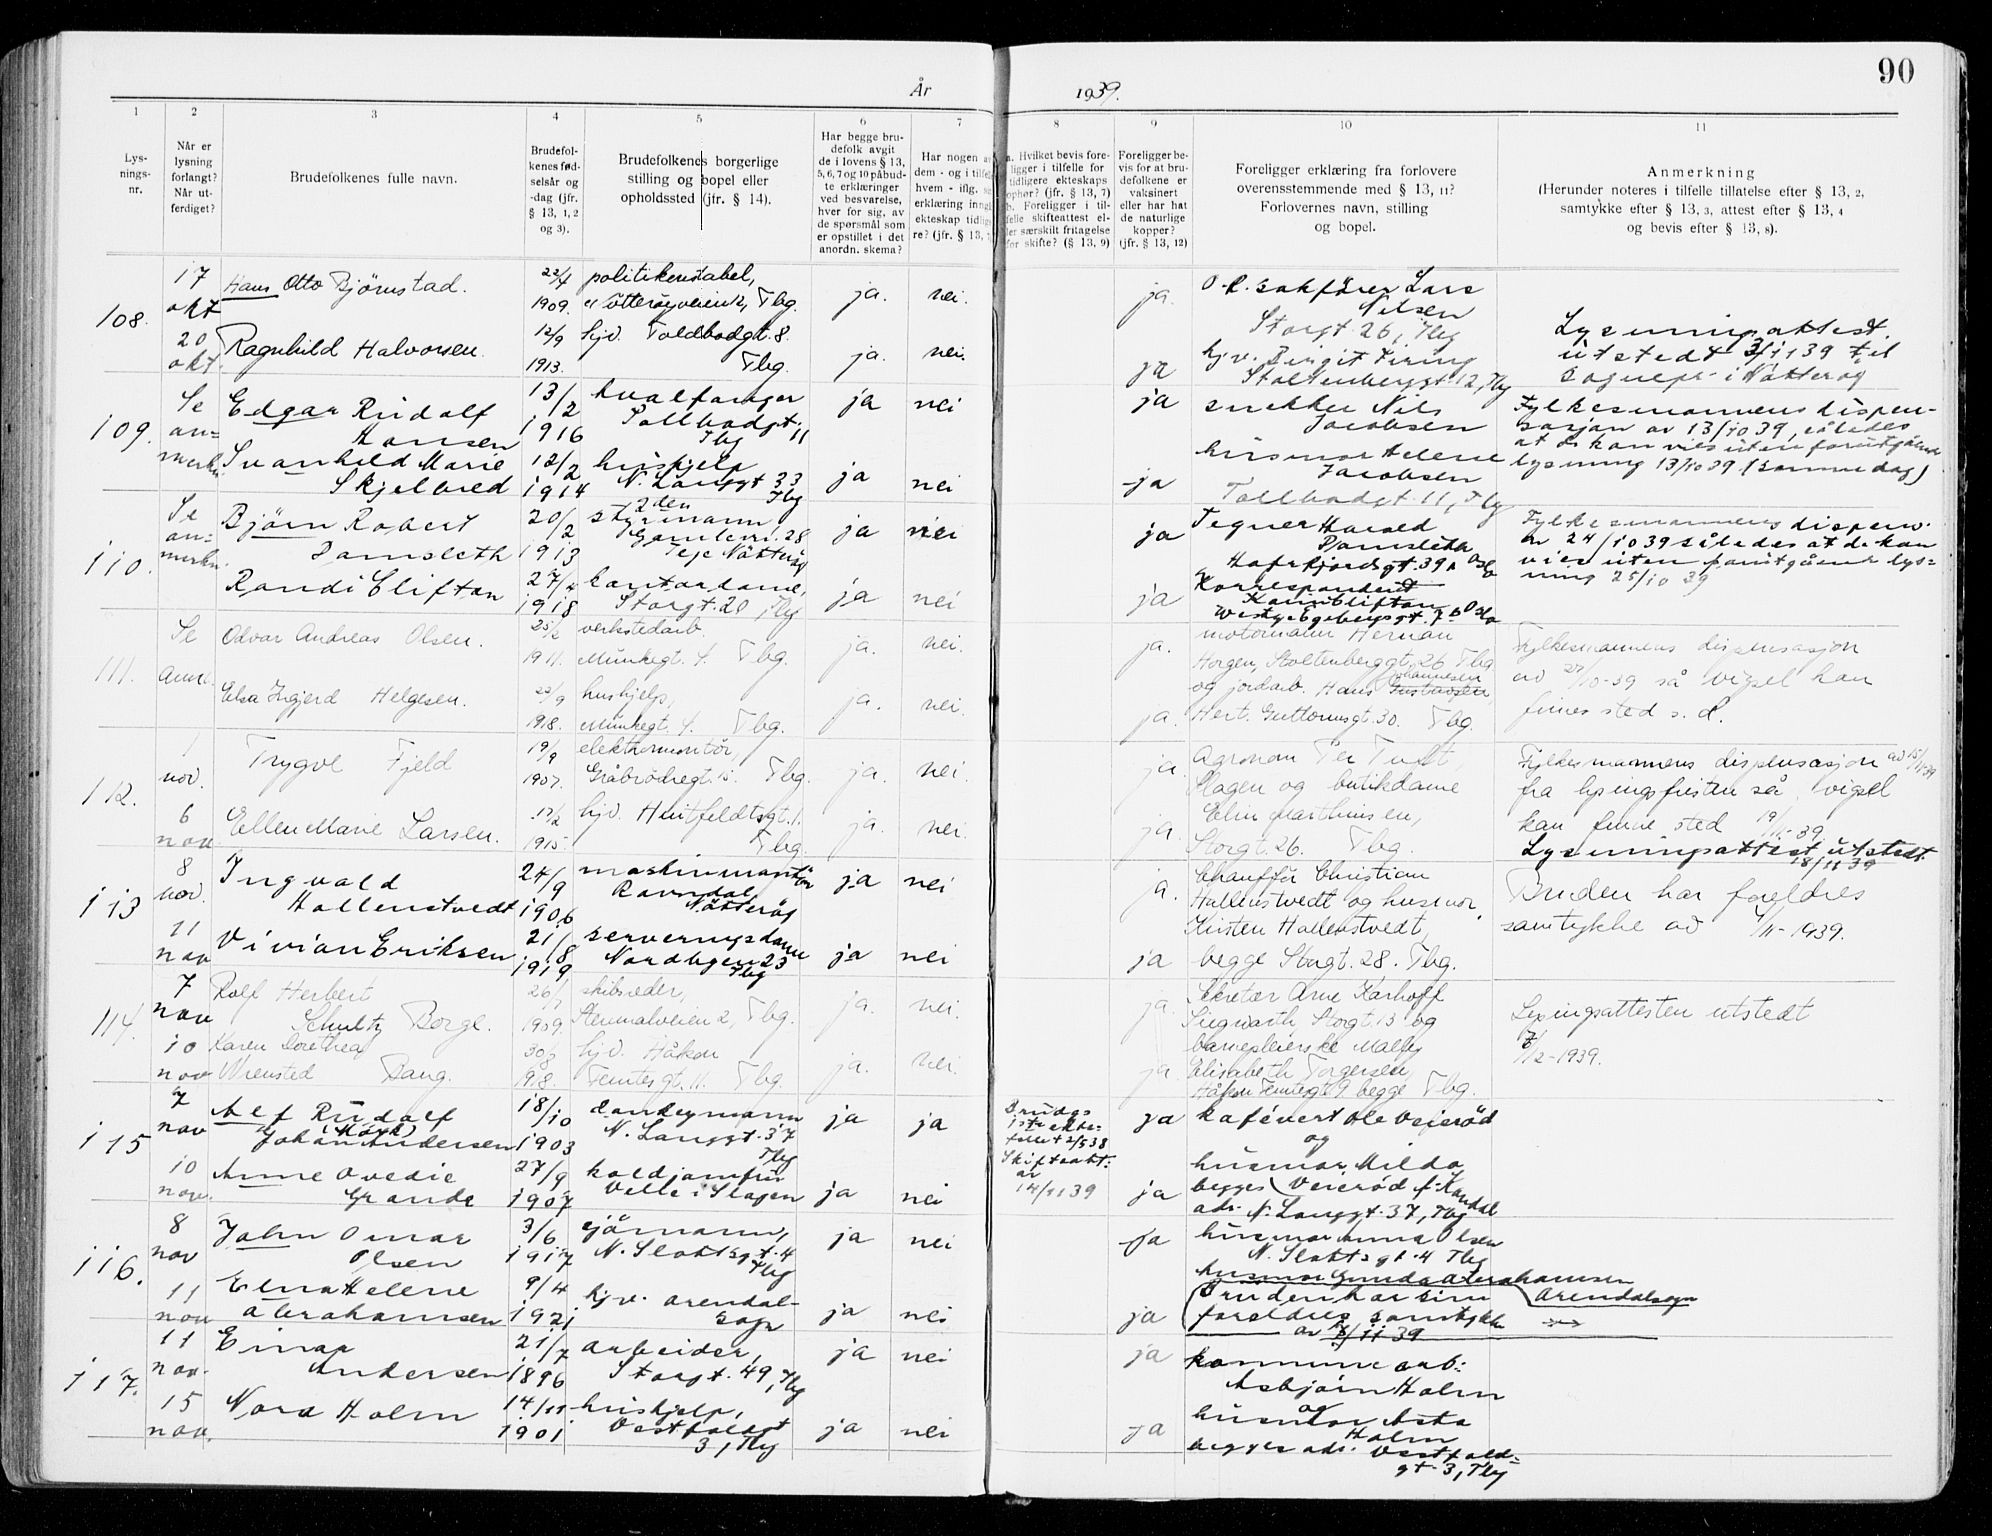 90
År 1939.
1 2 3 4 5 6 7 8 9 10 11
Lys-
nings-
nr.
Når er
lysning
forlangt?
Når ut-
ferdiget?
Brudefolkenes fulle navn.
Brudefol-
kenes fød-
selsår og
-dag (jfr.
§ 13, 1, 2
og 3).
Brudefolkenes borgerlige
stilling og bopel eller
opholdssted (jfr. § 14).
Har begge bru-
defolk avgit
de i lovens § 13,
5, 6, 7 og 10 påbud-
te erklæringer
ved besvarelse,
hver for sig, av
de spørsmål som
er opstillet i det
anordn. skema?
Har nogen av
dem - og i tilfelle
hvem - iflg.
erklæring inngått
ekteskap tidlige-
re? (jfr. § 13,
a. Hvilket bevis fore-
ligger i tilfelle for
tidligere ekteskaps
ophør? (jfr. § 13, 7)
b. Foreligger i til-
felle skifteattest el-
ler særskilt fritagelse
for skifte? (§ 13, 9)
Foreligger be-
vis for at bru-
defolkene er
vaksinert
eller har hat
de naturlige
kopper?
(jfr. § 13, 12)
Foreligger erklæring fra forlovere
overensstemmende med § 13, 11?
Forlovernes navn, stilling
og bopel.
Anmerkning
(Herunder noteres i tilfelle tillatelse efter § 13, 2,
samtykke efter § 13, 3, attest efter § 13, 4
og bevis efter § 13, 8).
108.
17
okt
20
okt.
Hans Otto Bjørnstad.
22/4
1909.
politikonstabel,
Nøtterøyveien 2, Tbg.
ja. nei. ja.
O.r.sakfører Lars
Nilsen
Storgt. 26, Tbg
Ragnhild Halvorsen.
12/9
1913.
hjv. Toldbodgt. 8.
Tbg.
ja. nei. ja
hjv. Birgit
Stoltenberggt. 12, Tbg
Lysningsattest
utstedt 3/11 39 til
sognepr. i Nøtterøy
109.
Se
an=
merkn.
Edgar Rudolf
Hansen
13/2
1916
hvalfanger
Tollbodgt. 11
Tbg
ja nei ja
snekker Nils
Jacobsen
Svanhild Marie
Skjelbred
12/2
1914
hushjelp
N. Langgt 33
Tbg
ja nei ja
husmor Helene
Jacobsen
Tollbodgt. 11, Tbg
Fylkesmannens dispen-
sasjon av 13/10 39, således
at de kan vies uten forutgående
lysning 13/10 39 (samme dag)
110.
Se
an=
merkn.
Bjørn Robert
Ramsleth
20/2
1913
2den
styrmann
Gamlevn. 28
Teie Nøtterøy
ja nei ja
Tegner Harald
Ramsleth
Hafrsfjordgt. 39 A Oslo
Randi Clifton
27/4
1918
kontordame,
Storgt. 20, Tbg
ja nei ja
Korrespondent
Karin Clifton
Westye Egebergsgt. 7 b Oslo
Fylkesmannens dispens.
av 24/10 39 således at de kan
vies uten forutgående lys-
ning 25/10 39
111.
Se
anm.
Odvar Andreas Olsen.
25/2
1911.
verkstedarb.
Munkegt. 4. Tbg.
ja. nei. ja.
motormann Herman
Horgen, Stoltenberggt. 26 Tbg
og jordarb. Hans Gustavsen
Johannesen
Elsa Ingjerd Helgesen.
22/9
1918.
hushjelp,
Munkegt. 4. Tbg.
ja. nei. ja.
Hert. Guttormsgt. 30. Tbg.
Fylkesmannens dispensasjon
av 27/10-39 så vigsel kan
finne sted s. d.
112.
1
nov.
6
nov
Trygve Fjeld
19/9
1907.
elektromontør,
Gråbrødregt. 15. Tbg.
ja. nei. ja.
Agronom Per Tveit,
Slagen og butikdame
Ellen Marie Larsen.
17/2
1915.
hjv. Huitfeldtsgt. 1.
Tbg.
ja. nei. ja.
Elin Marthinsen,
Storgt. 26. Tbg.
Fylkesmannens dispensasjon av 15/11-39
fra lysingsfristen så vigsel
kan finne sted 19/11-39.
Lysningsattest utstedt
18/11 39
113
8
nov.
11
nov
Ingvald
Hallenstvedt
24/9
1906
maskinmontør
Ramdal
Nøtterøy
ja nei ja
Chauffør Christian
Hallenstvedt og husmor
Kirsten Hallenstvedt,
Vivian Eriksen
21/8
1919
serveringsdame
Nordbyen 23
Tbg
ja nei ja
begge Storgt. 28. Tbg.
Bruden har foreldres
samtykke av 4/11-1939.
114.
7
nov
10
nov
Rolf Herbert
Schultz Borge.
26/7
1909
skibsreder,
Stenmalveien 2, Tbg.
ja. nei. ja
Sekretær Arne Karhoff
Siegwarth Storgt. 13 og
Karen Dorothea
Wrensted Bang.
30/9
1918.
hjv. Håkon
Femtesgt. 11. Tbg.
ja. nei. ja.
barnepleierske Mally
Elisabeth Torgersen,
Håkon Femtesgt. 9 begge Tbg.
Lysingsattesten utstedt
7/12-1939.
115
7
nov
10
nov.
Alf Rudolf
(Mørk)
Johan Andersen
18/10
1903
donkeymann
N. Langgt. 37
Tbg
ja ja
Brudgs
1ste ekte-
felle † 2/5 38
Skifteatt.
av
14/11 39
ja
kafévert Ole Veierød
og
Anne Ovedie
Grande
27/9
1907
koldjomfru
Velle i Slagen
ja nei ja
husmor Milda
Veierød f. Kandal
begges
adr. N. Langgt. 37, Tbg
116.
8
nov
11
nov
John Omar
Olsen
3/6
1917
sjømann,
N. Slottsgt. 4
Tbg
ja nei ja
husmor Anna Olsen
N. Slottsgt. 4 Tbg
Elna Helene
Abrahamsen
9/4
1921
hjv. Arendal-
sogn
ja nei ja
husmor Gunda Abrahamsen
Arendalsogn
(Bruden har sine
foreldres samtykke
av 8/11 39
117.
11
nov.
15
nov.
Einar
Andersen
21/7
1896
arbeider,
Storgt. 49, Tbg
ja nei ja
kommunearb.
Asbjørn Holm
og
Nora Holm
14/11
1901
hushjelp,
Vestfoldgt
3, Tbg
ja nei ja
husmor Asta
Holm
begges adr. Vestfold-
gt. 3, Tbg